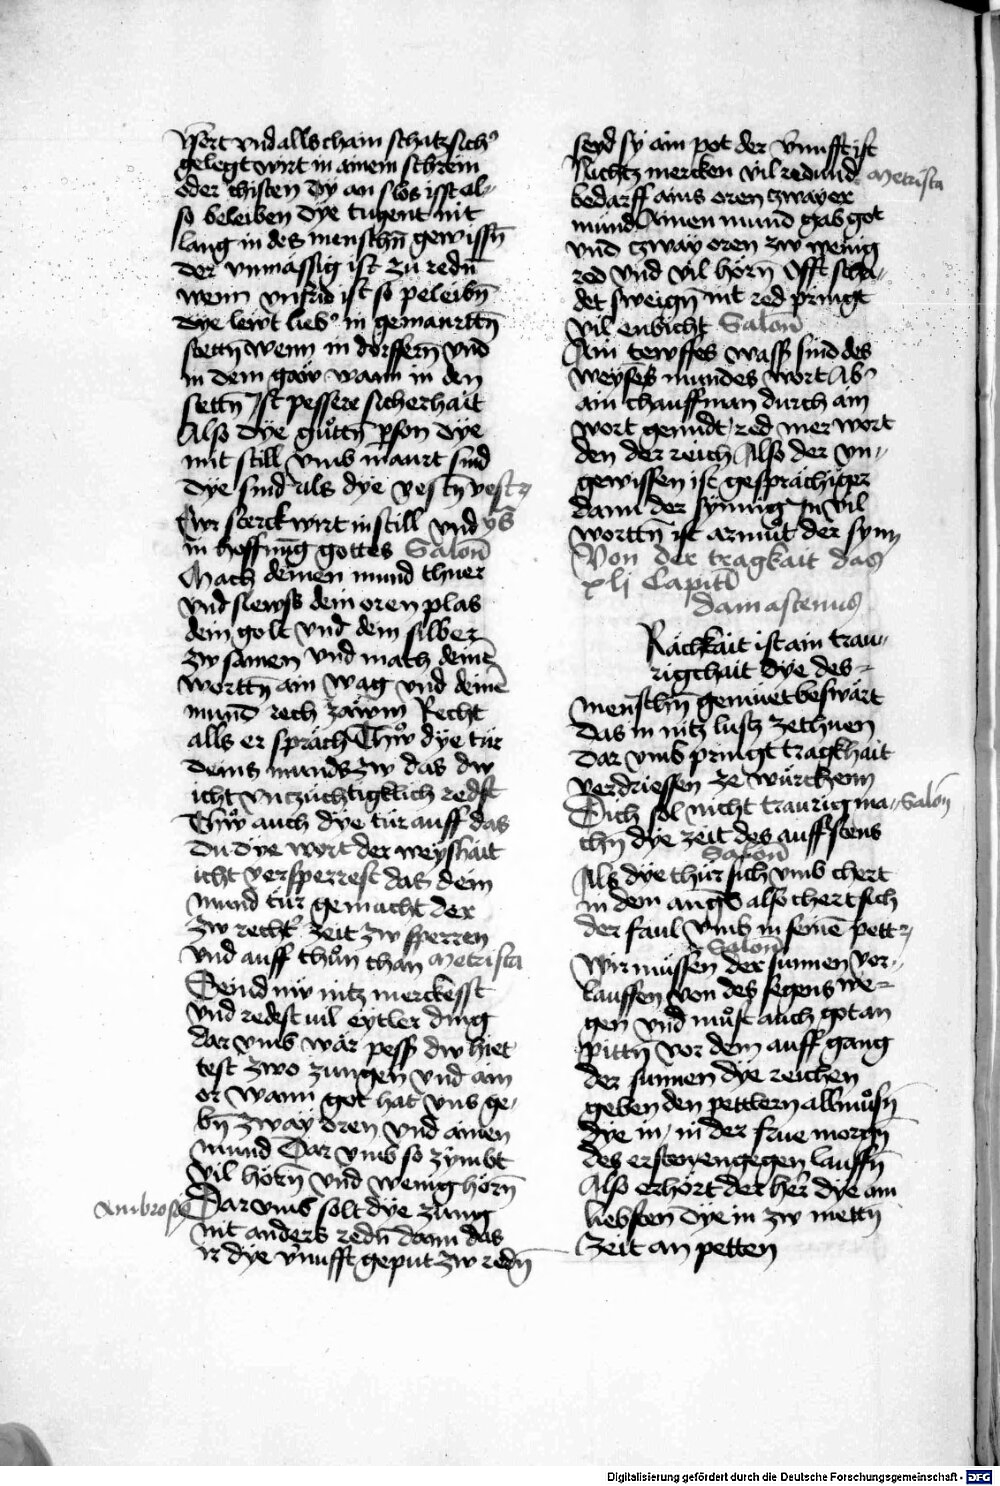 vsert vnd alls chain schatz sich᾽
gelegt wirt in ainem schrein
oder chisten dy an slos isst al-
so beleiben dye tugent nit
lang in des menschn̄ gewissn̄
der vnmässig ist zu redn̄
wenn vnfrid ist so peleibn̄
dye lewt lieb᾽ in gemaurttn̄
stettn̄ wenn in dörffern̄ vnd
in dem gaw wann in den
stettn̄ ist pessere sicherhait
Also dye guͦttn̄ p̱son dye
mit still vmb maurt sind
dye sind als dye vestn̄ vest
Ewr sterck wirt in still vnd ys̄
in hoffnūg gottes Salon̄
Mach deinen mund thuer
vnd slewss dein oren plas
dein golt vnd dein silber
zw samen vnd mach deinē
worttn̄ ain wag vnd deinē
mund rech zäwm Recht
alls er spräch Thwͦ dye tür
deins munds zw das dw
icht vnczüchtigklich redst
Thwͦ auch dye tür auff das
du dye wort der weyshait
icht versperrest das dein
mund tür gemacht der
zw recht᾽ zeit zw sperren
vnd auff thuͦn chan Metrista
Seind nw nitz merckesst
vnd redest vil eytler ding
dar vmb wär pess dw hiet
test zwo zungen vnd ain
or wann got hat vns ge-
bn̄ zway oren vnd ainen
mund Dar vmb so zymbt
vil hörn̄ vnd wenig hörn̄
Ambrosius Dar vmb solt dye zung
nit anders redn̄ dann das
ir dye vnufft geput zw redn̄
seyd sy ain pot der vnufft ist
Nichtz mercken vil redund Metrista
bedarff ains oren zwayer
mund Ainen mund gab got
vnd czway oren zw wenig
red vnd vil hörn̄ Offt scha-
det sweign̄ nit red pringt
vil enbicht Salon̄
Ain tewffes wass sind des
weyses mundes wort Ab᾽
ain chauffman durch ain
wort gemidt red mer wort
den der reich Also der vn-
gewissen ist gesprächiger
dann der synnig In vil
worttn̄ ist armuͦt der synn
Von der tragkait das
xlj Capitl̄
damascenus
Rachkait ist ain trau-
rigchait dye des
menschn̄ gemüet beswärt
das in nitz lustz zethuen
dar vmb pringt tragkhait
verdriessen ze würckenn
Dich sol nicht traurig ma- Salon̄
chn̄ dye zeit des auffstens
Salon̄
Als dye thür sich vmb chert
in dem angl̄ also chert sich
der faul vmb in seinē pett
Salon̄
Wir müssen der sunnen vor-
lauffen von des segens we-
gen vnd muͦst auch got an
pittn̄ vor dem auff gang
der sunnen dye reichen
geben den pettlern allmuͦsn̄
dye in in der frue morgn̄
des ersten engegen lauffn̄
Also erhört der her̄ dye am
liebsten dye in zw mettn̄
zeit an petten
Digitalisierung gefördert durch die Deutsche Forschungsgemeinschaft - DFG